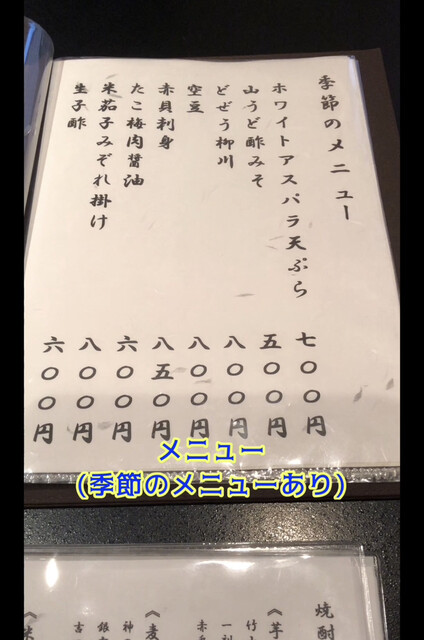 季節のメニュー
ホワイトアスパラ天ぷら 七〇〇円
山うど酢みそ 五〇〇円
どぜう柳川 八〇〇円
空豆 八〇〇円
赤貝刺身 八五〇円
たこ梅肉醤油 六〇〇円
米茄子みぞれ掛け 八〇〇円
生子酢 六〇〇円
メニュー
(季節のメニューあり)
焼酎
《芋
《麦